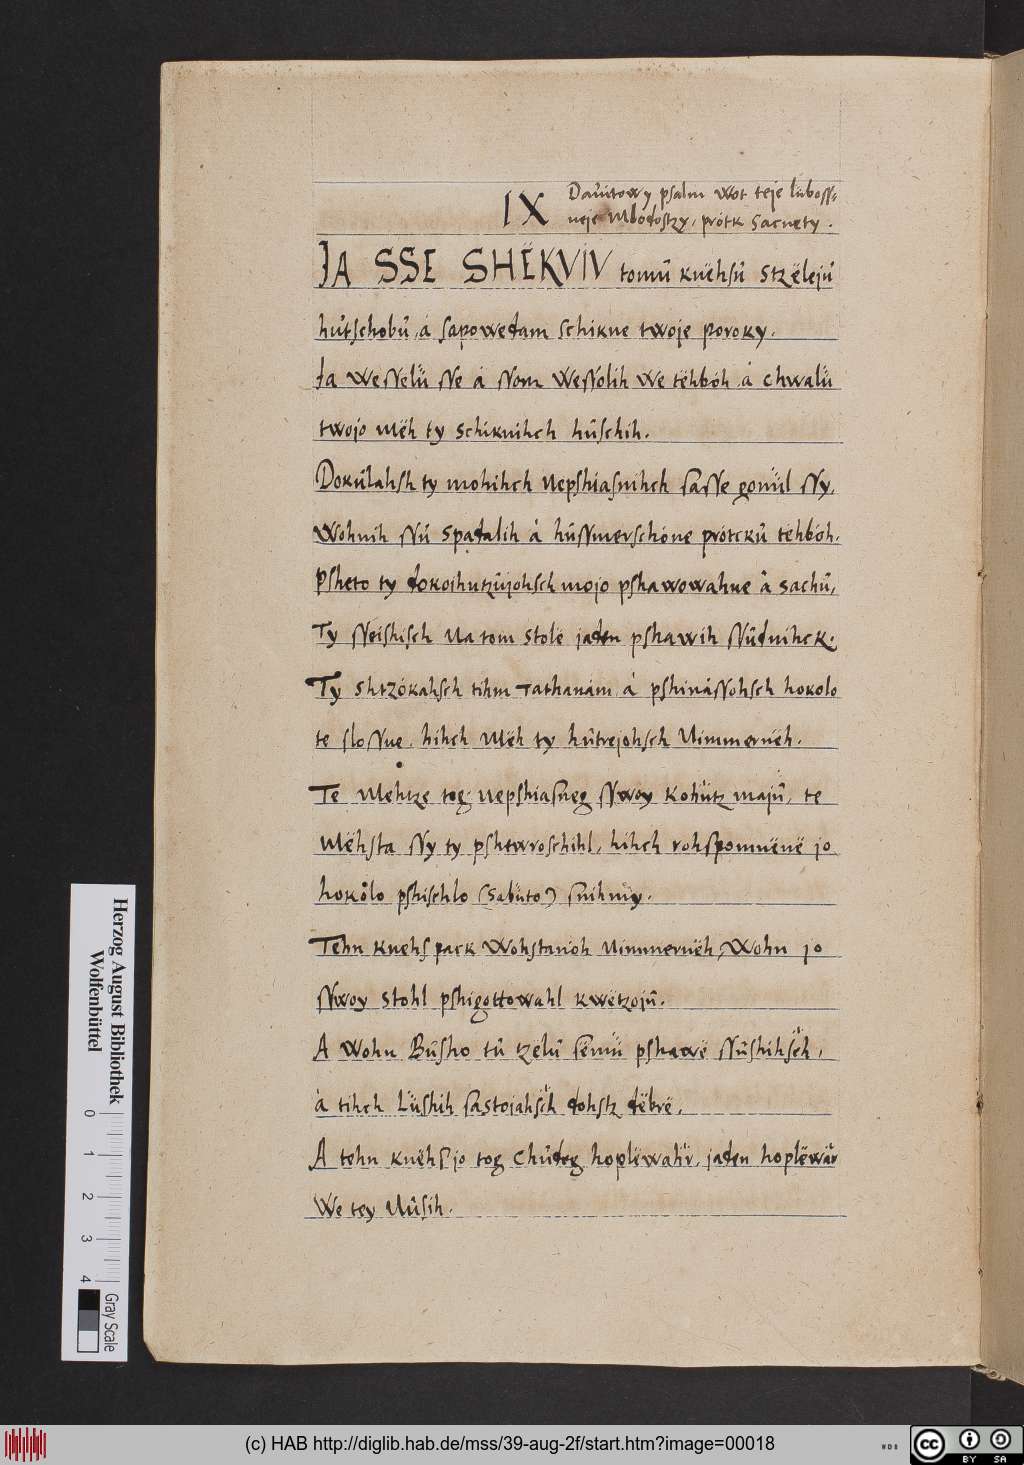 IX Dauitowy psalm wot teje lüboss,
neje Mlodostzy, protk sacnety.
JA SSE SHËKVIV tomû knëhsû stzëlejû
hůtschobů, á sapowedam schikne twoje poroky.
Ja Wesselü sse á ssom Wessolih we tëhbóh á chwalü
twojo Mëh ty schiknihch hûschih.
Dokůlahsh ty mohihch Nepshiasnihch sasse gonül ssy,
Wohnih ssů spadalih á hůssmerschóne prótcků tëhbóh.
Psheto ty dokojhutzüjohsch mojo pshawowahne á sachů,
Ty sseishisch Na tom stolë jaden pshawih ssůdnihck.
Ty shtzókahsch tihm Tathanám á pshinássohsch hokolo
te slossne, hihch Mëh ty hůtrejohsch Nimmernëh.
Te Mehtze tog nepshiasneg sswoy kohůtz majů, te
Mëhsta ssy ty pshewroschihl, hihch rohspomnënë jo
hokólo pshischlo (sabüto) snihmy.
Tehn knehs pack Wohstanóh Nimmernëh, Wohn jo
sswoy stohl pshigottowahl kwëtzojů.
A Wohn Bůsho tů tzelů sëmü pshawë ssůshihsch,
á tihch Lüshih sastojahsch dohstz dëbrë.
A tehn knëhs jo tog Chůdog hoplëwahr, jaden hoplëwár
We tey Nůsih.
Herzog August Bibliothek
Wolfenbüttel
0 1 2 3 4
Gray Scale
(c) HAB http://diglib.hab.de/mss/39-aug-2f/start.htm?image=00018
WDB
cc
BY SA